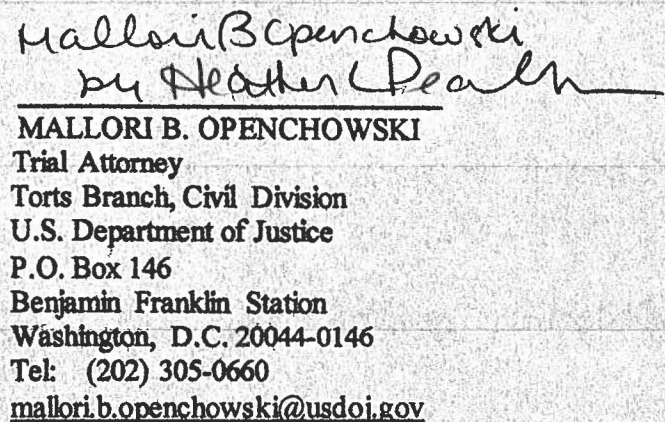 Mallori B Openchowski
by Heather L Pearlman
MALLORI B. OPENCHOWSKI
Trial Attorney
Torts Branch, Civil Division
U.S. Department of Justice
P.O. Box 146
Benjamin Franklin Station
Washington, D.C. 20044-0146
Tel: (202) 305-0660
mallori.b.openchowski@usdoj.gov